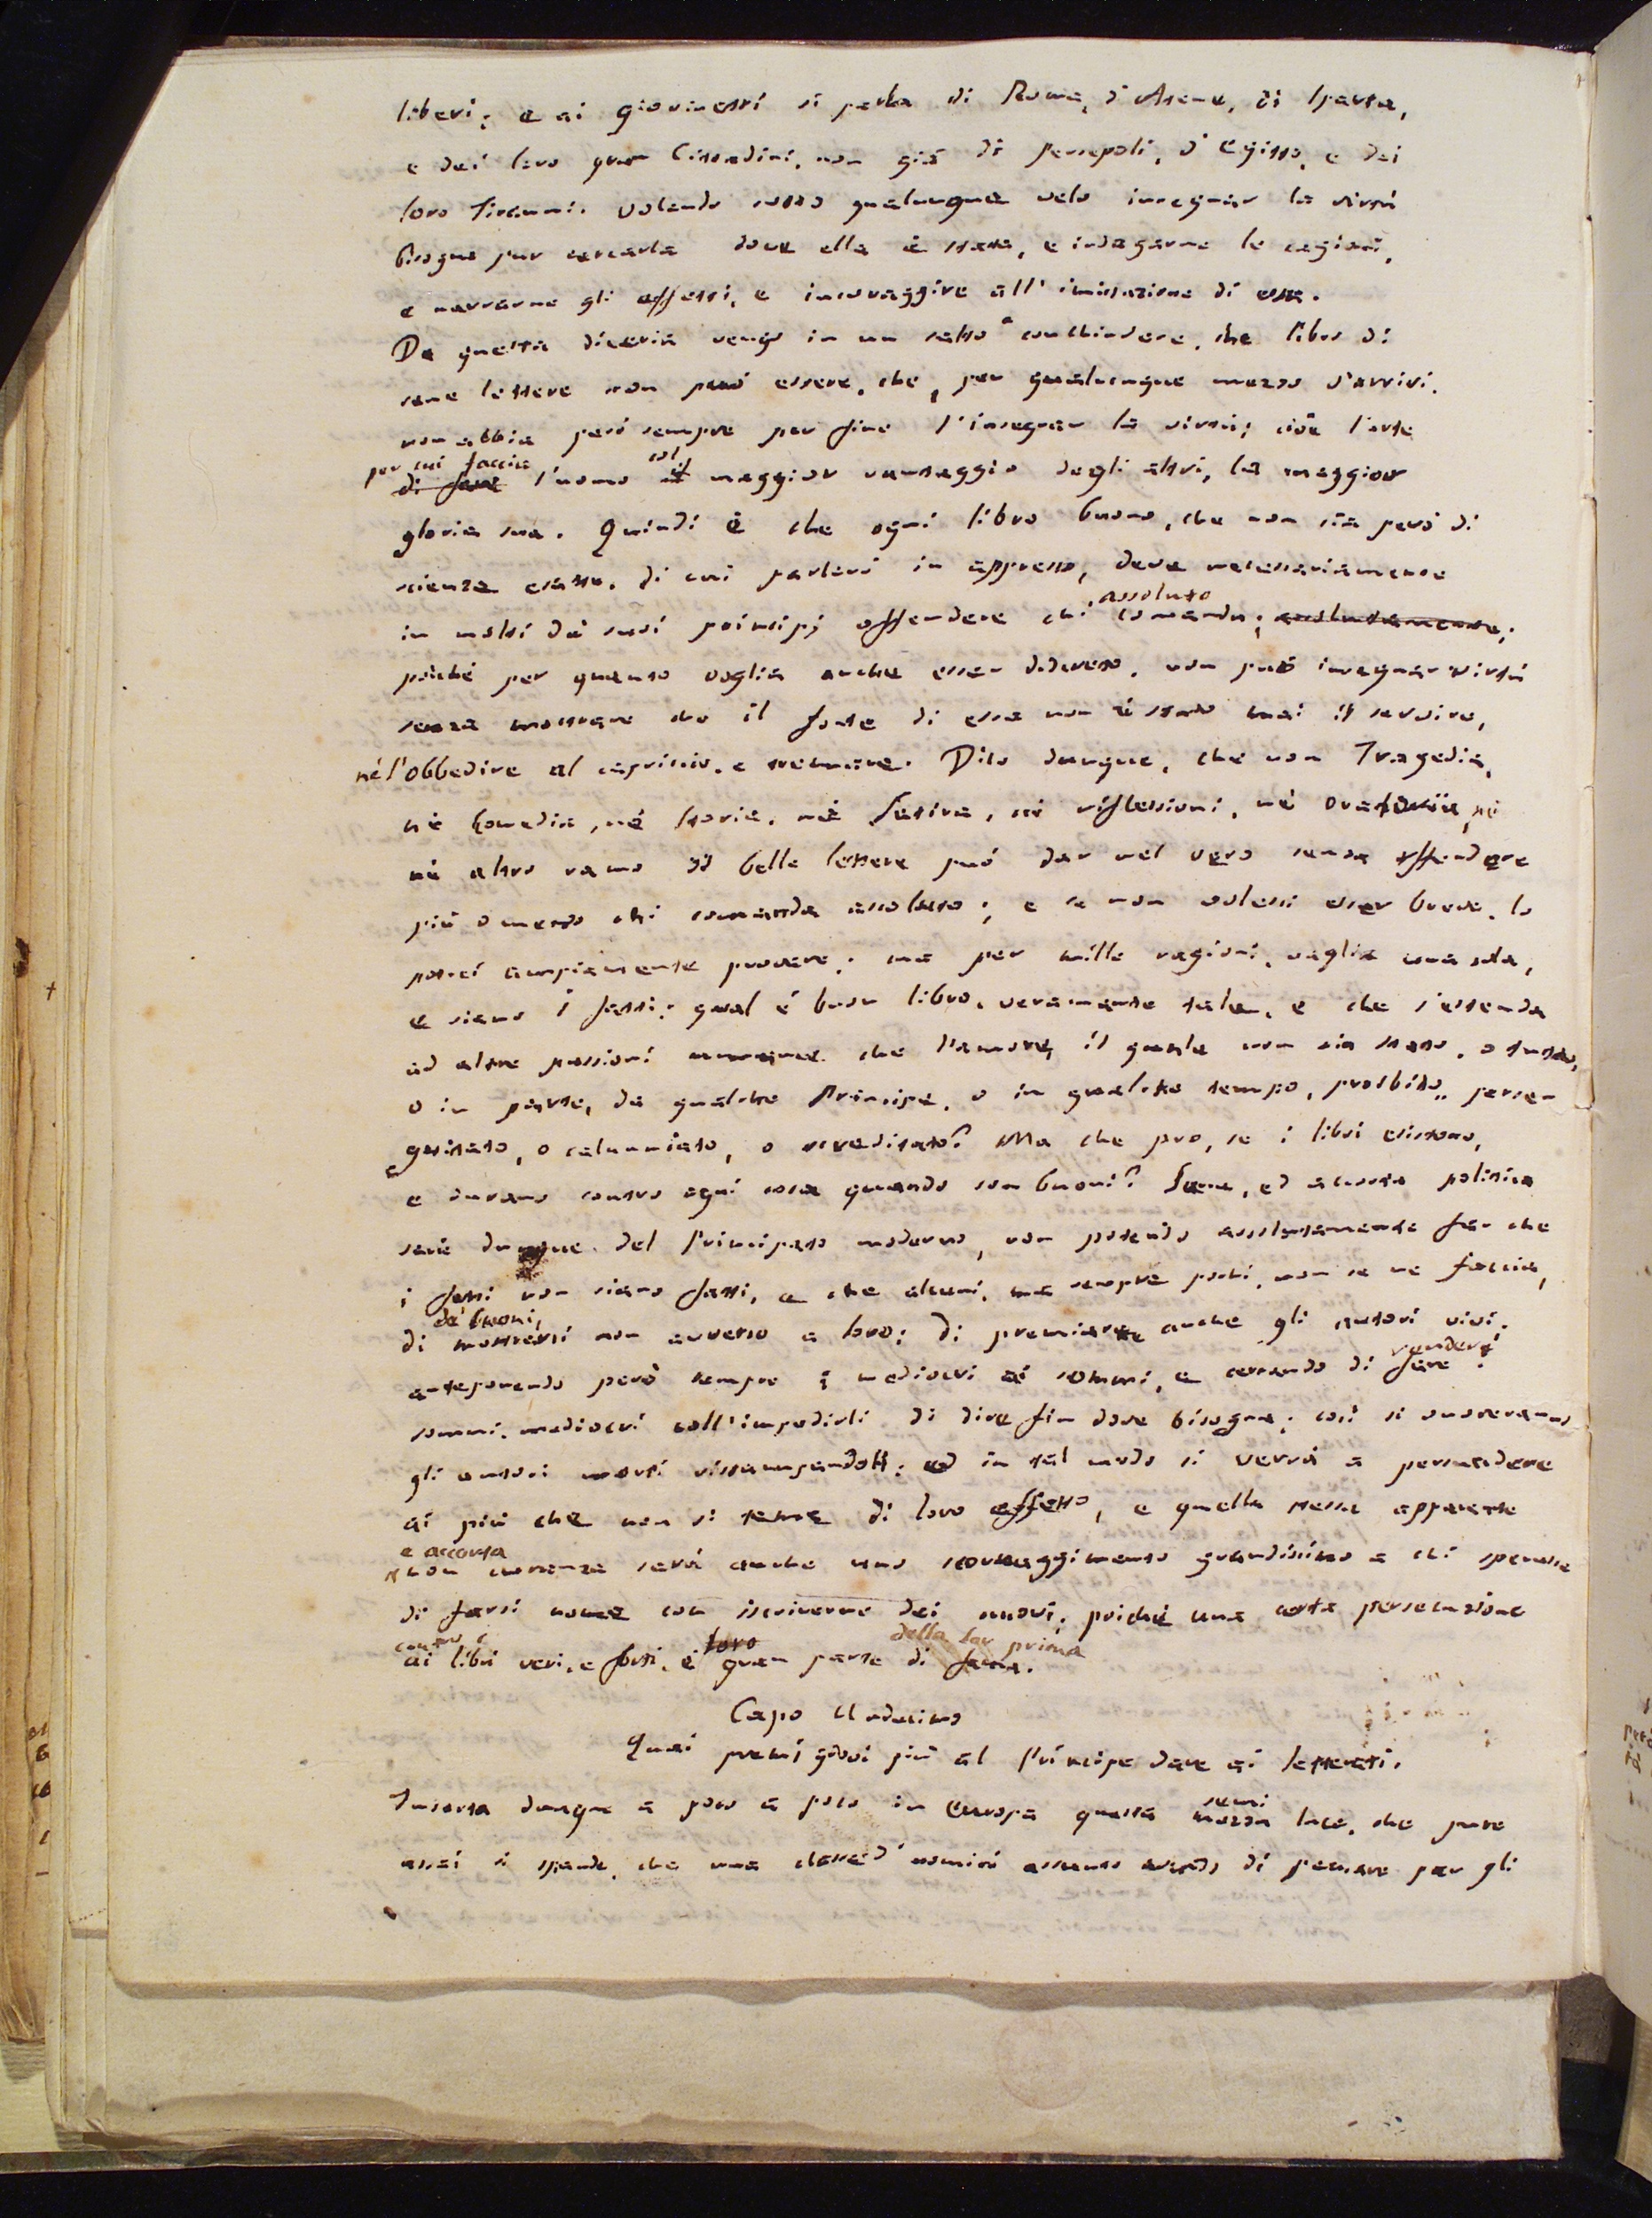 liberi; e ai giovinetti si parla di Roma, d'Atene, di Sparta,
e dei loro gran Cittadini, non già di Persepoli, d'Egitto, e dei
loro Tiranni. Volendo sotto qualunque velo insegnar la virtù
bisogna pur cercarla dove ella è stata, e indagarne le cagioni,
e narrarne gli effetti, e incoraggire all'imitazione di essa.
Da questa diceria vengo in un salto a conchiudere, che libro di
sane lettere non può essere, che, per qualunque mezzo v'arrivi,
non abbia però sempre per fine l'insegnar la virtù; cioè l'arte
per cui faccia col
di fare l'uomo il maggior vantaggio degli altri, la maggior
gloria sua. Quindi è che ogni libro buono, che non sia però di
scienze esatte, di cui parlerò in appresso, deve necessariamente
assoluto
in molti de' suoi principj offendere chi comanda; assolutamente;
poiché per quanto voglia anche esser discreto, non può insegnar virtù
senza mostrare che il fonte di essa non è stato mai il servire,
né l'obbedire al capriccio, e tremare. Dico dunque, che non Tragedia,
né Comedia, né storia, né Satira, né riflessioni, né oratoria, né
né altro ramo di belle lettere può dar nel vero senza offendere
più o meno chi comanda assoluto; e se non volessi esser breve, lo
potrei ampiamente provare; ma per mille ragioni, vaglia una sola,
e siano i fatti: qual è buon libro, veramente tale, e che s'estenda
ad altre passioni che l'amore, il quale non sia stato, o tutto,
o in parte, da qualche Principe, o in qualche tempo, proibito, perse-
guitato, o calunniato, o screditato? Ma che pro, se i libri esistono,
e durano contro ogni cosa quando son buoni? Sana, ed accorta politica
sarà dunque del Principato moderno, non potendo assolutamente far che
i fatti non siano fatti, e che alcuni, ma sempre pochi, non se ne faccia,
da' buoni,
di mostrarsi non avverso a loro; di premiare anche gli autori vivi,
render i
anteponendo però sempre i mediocri ai sommi, e cercando di fare i
sommi, mediocri coll'impedirli di dire fin dove bisogna; così si onoreranno
gli autori morti ristampandoli; ed in tal modo si verrà a persuadere
ai più che non si teme di loro effetto, e quella stessa apparente
e accorta
non curanza sarà anche uno scoraggimento grandissimo a chi sperasse
di farsi nome con iscriverne dei nuovi; poiché una certa persecuzione
contro i loro della lor prima
ai libri veri, e forti, è gran parte di fama.
Capo Undecimo
Quai premj giovi più al Principe dare ai letterati.
semi
Insorta dunque a poco a poco in Europa questa mezza luce, che pure
assai si spande, che una classe d'uomini assunto avendo di pensare per gli